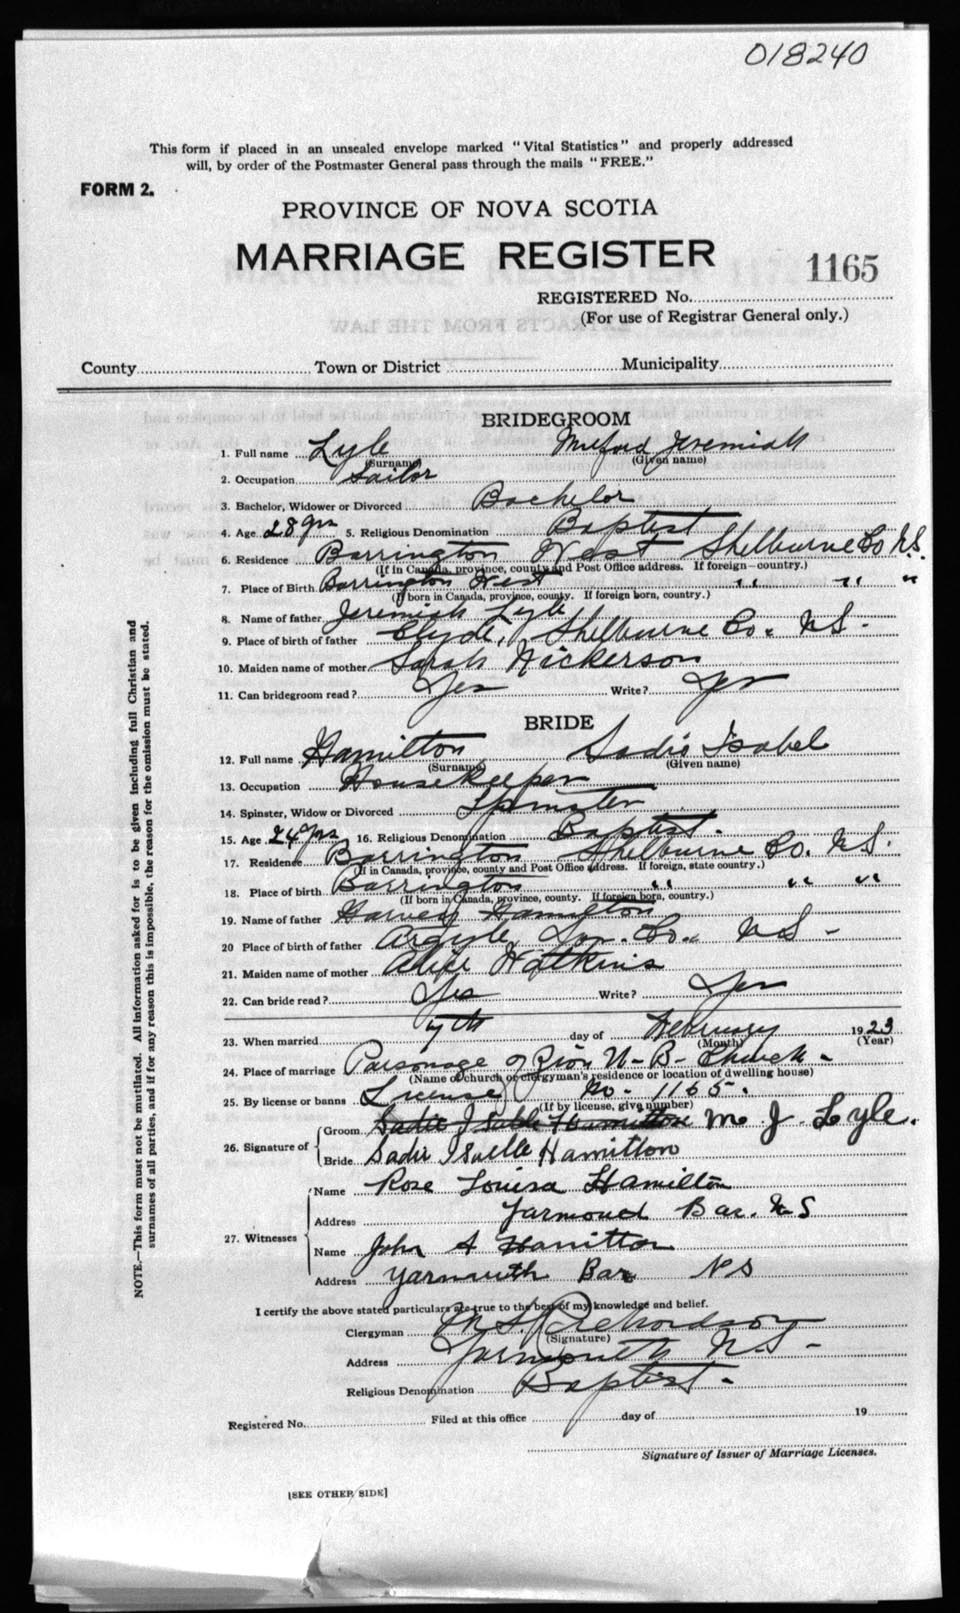 018240
This form if placed in an unsealed envelope marked "Vital Statistics" and properly addressed
will, by order of the Postmaster General pass through the mails "FREE."
FORM 2.
PROVINCE OF NOVA SCOTIA
MARRIAGE REGISTER
1165
REGISTERED No.
(For use of Registrar General only.)
County Town or District Municipality
BRIDEGROOM
1. Full name Lyle Milford Jeremiah
(Surname) (Given name)
2. Occupation Sailor
3. Bachelor, Widower or Divorced Bachelor
4. Age 28 yrs 5. Religious Denomination Baptist
6. Residence Barrington West Shelburne Co N.S.
(If in Canada, province, county and Post Office address. If foreign—country.)
7. Place of Birth Barrington West " " "
(If born in Canada, province, county. If foreign born, country.)
8. Name of father Jeremiah Lyle
9. Place of birth of father Clyde, Shelburne Co. N.S.
10. Maiden name of mother Sarah Nickerson
11. Can bridegroom read? Yes Write? Yes
BRIDE
12. Full name Hamilton Sadie Isabel
(Surname) (Given name)
13. Occupation Housekeeper
14. Spinster, Widow or Divorced Spinster
15. Age 24 yrs 16. Religious Denomination Baptist.
17. Residence Barrington Shelburne Co. N.S.
(If in Canada, province, county and Post Office address. If foreign, state country.)
18. Place of birth Barrington " " "
(If born in Canada, province, county. If foreign born, country.)
19. Name of father Harvey Hamilton
20 Place of birth of father Argyle, Co. N S -
21. Maiden name of mother Alice Watkins
22. Can bride read? Yes Write? Yes
23. When married 7th day of February 1923
(Month) (Year)
24. Place of marriage Parsonage of Zion U- B- Church -
(Name of church or clergyman's residence or location of dwelling house)
25. By license or banns License No. 1165.
(If by license, give number)
26. Signature of Groom M J. Lyle.
Bride Sadie Isuelle Hamilton
27. Witnesses Name Rose Louisa Hamilton
Address Yarmoud Bar. N S
Name John A Hamitton
Address Yarmouth Bar N S
I certify the above stated particulars are true to the best of my knowledge and belief.
Clergyman M S. Richardson
(Signature)
Address Yarmouth N.S. -
Religious Denomination Baptist -
Registered No. Filed at this office day of 19
Signature of Issuer of Marriage Licenses.
[SEE OTHER SIDE]
NOTE.—This form must not be mutilated. All information asked for is to be given including full Christian and
surnames of all parties, and if for any reason this is impossible, the reason for the omission must be stated.